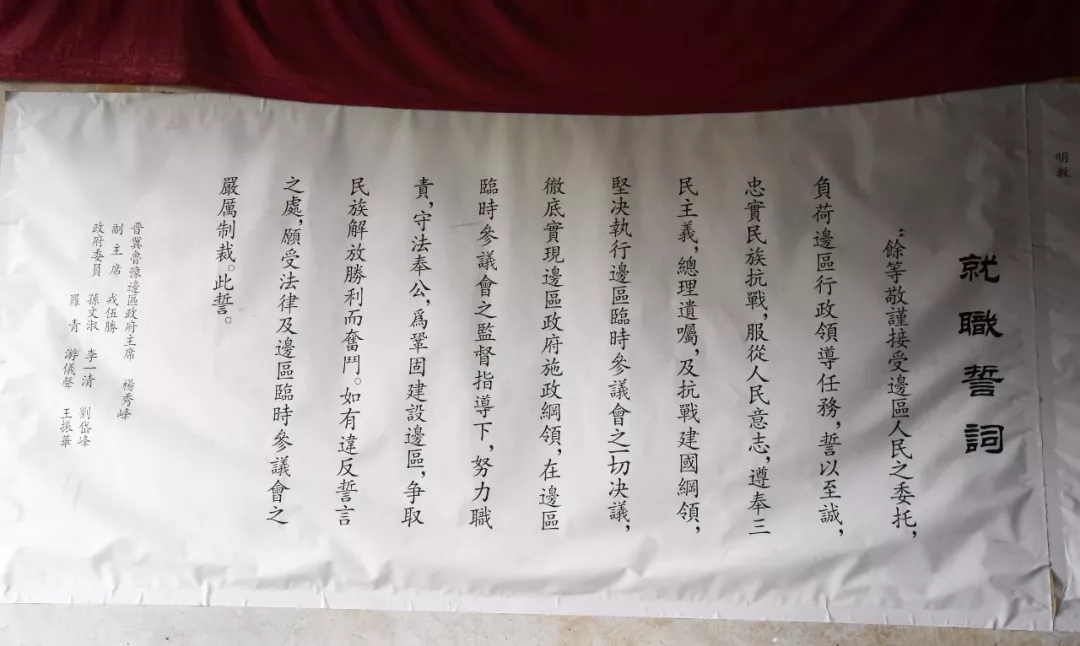 明教
就職誓詞
“餘等敬謹接受邊區人民之委托,
負荷邊區行政領導任務,誓以至誠,
忠實民族抗戰,服從人民意志,遵奉三
民主義,總理遺囑,及抗戰建國綱領,
堅决執行邊區臨時參議會之一切决議,
徹底實現邊區政府施政綱領,在邊區
臨時參議會之監督指導下,努力職
責,守法奉公,爲鞏固建設邊區,争取
民族解放勝利而奮鬥。如有違反誓言
之處,願受法律及邊區臨時參議會之
嚴厲制裁。此誓。
晋冀魯豫邊區政府主席 楊秀峰
副主席 戎伍勝
政府委員 孫文淑 李一清 劉岱峰
羅青 游儀聲 王振華